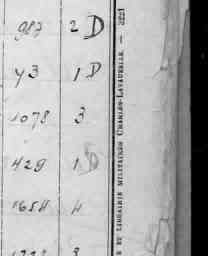 987 2 D
43 1 D
1078 3
429 1 D
1654 4
3
E ET LIBRAIRIE MILITAIRES CHARLES-LAVAUZELLE. — 3221